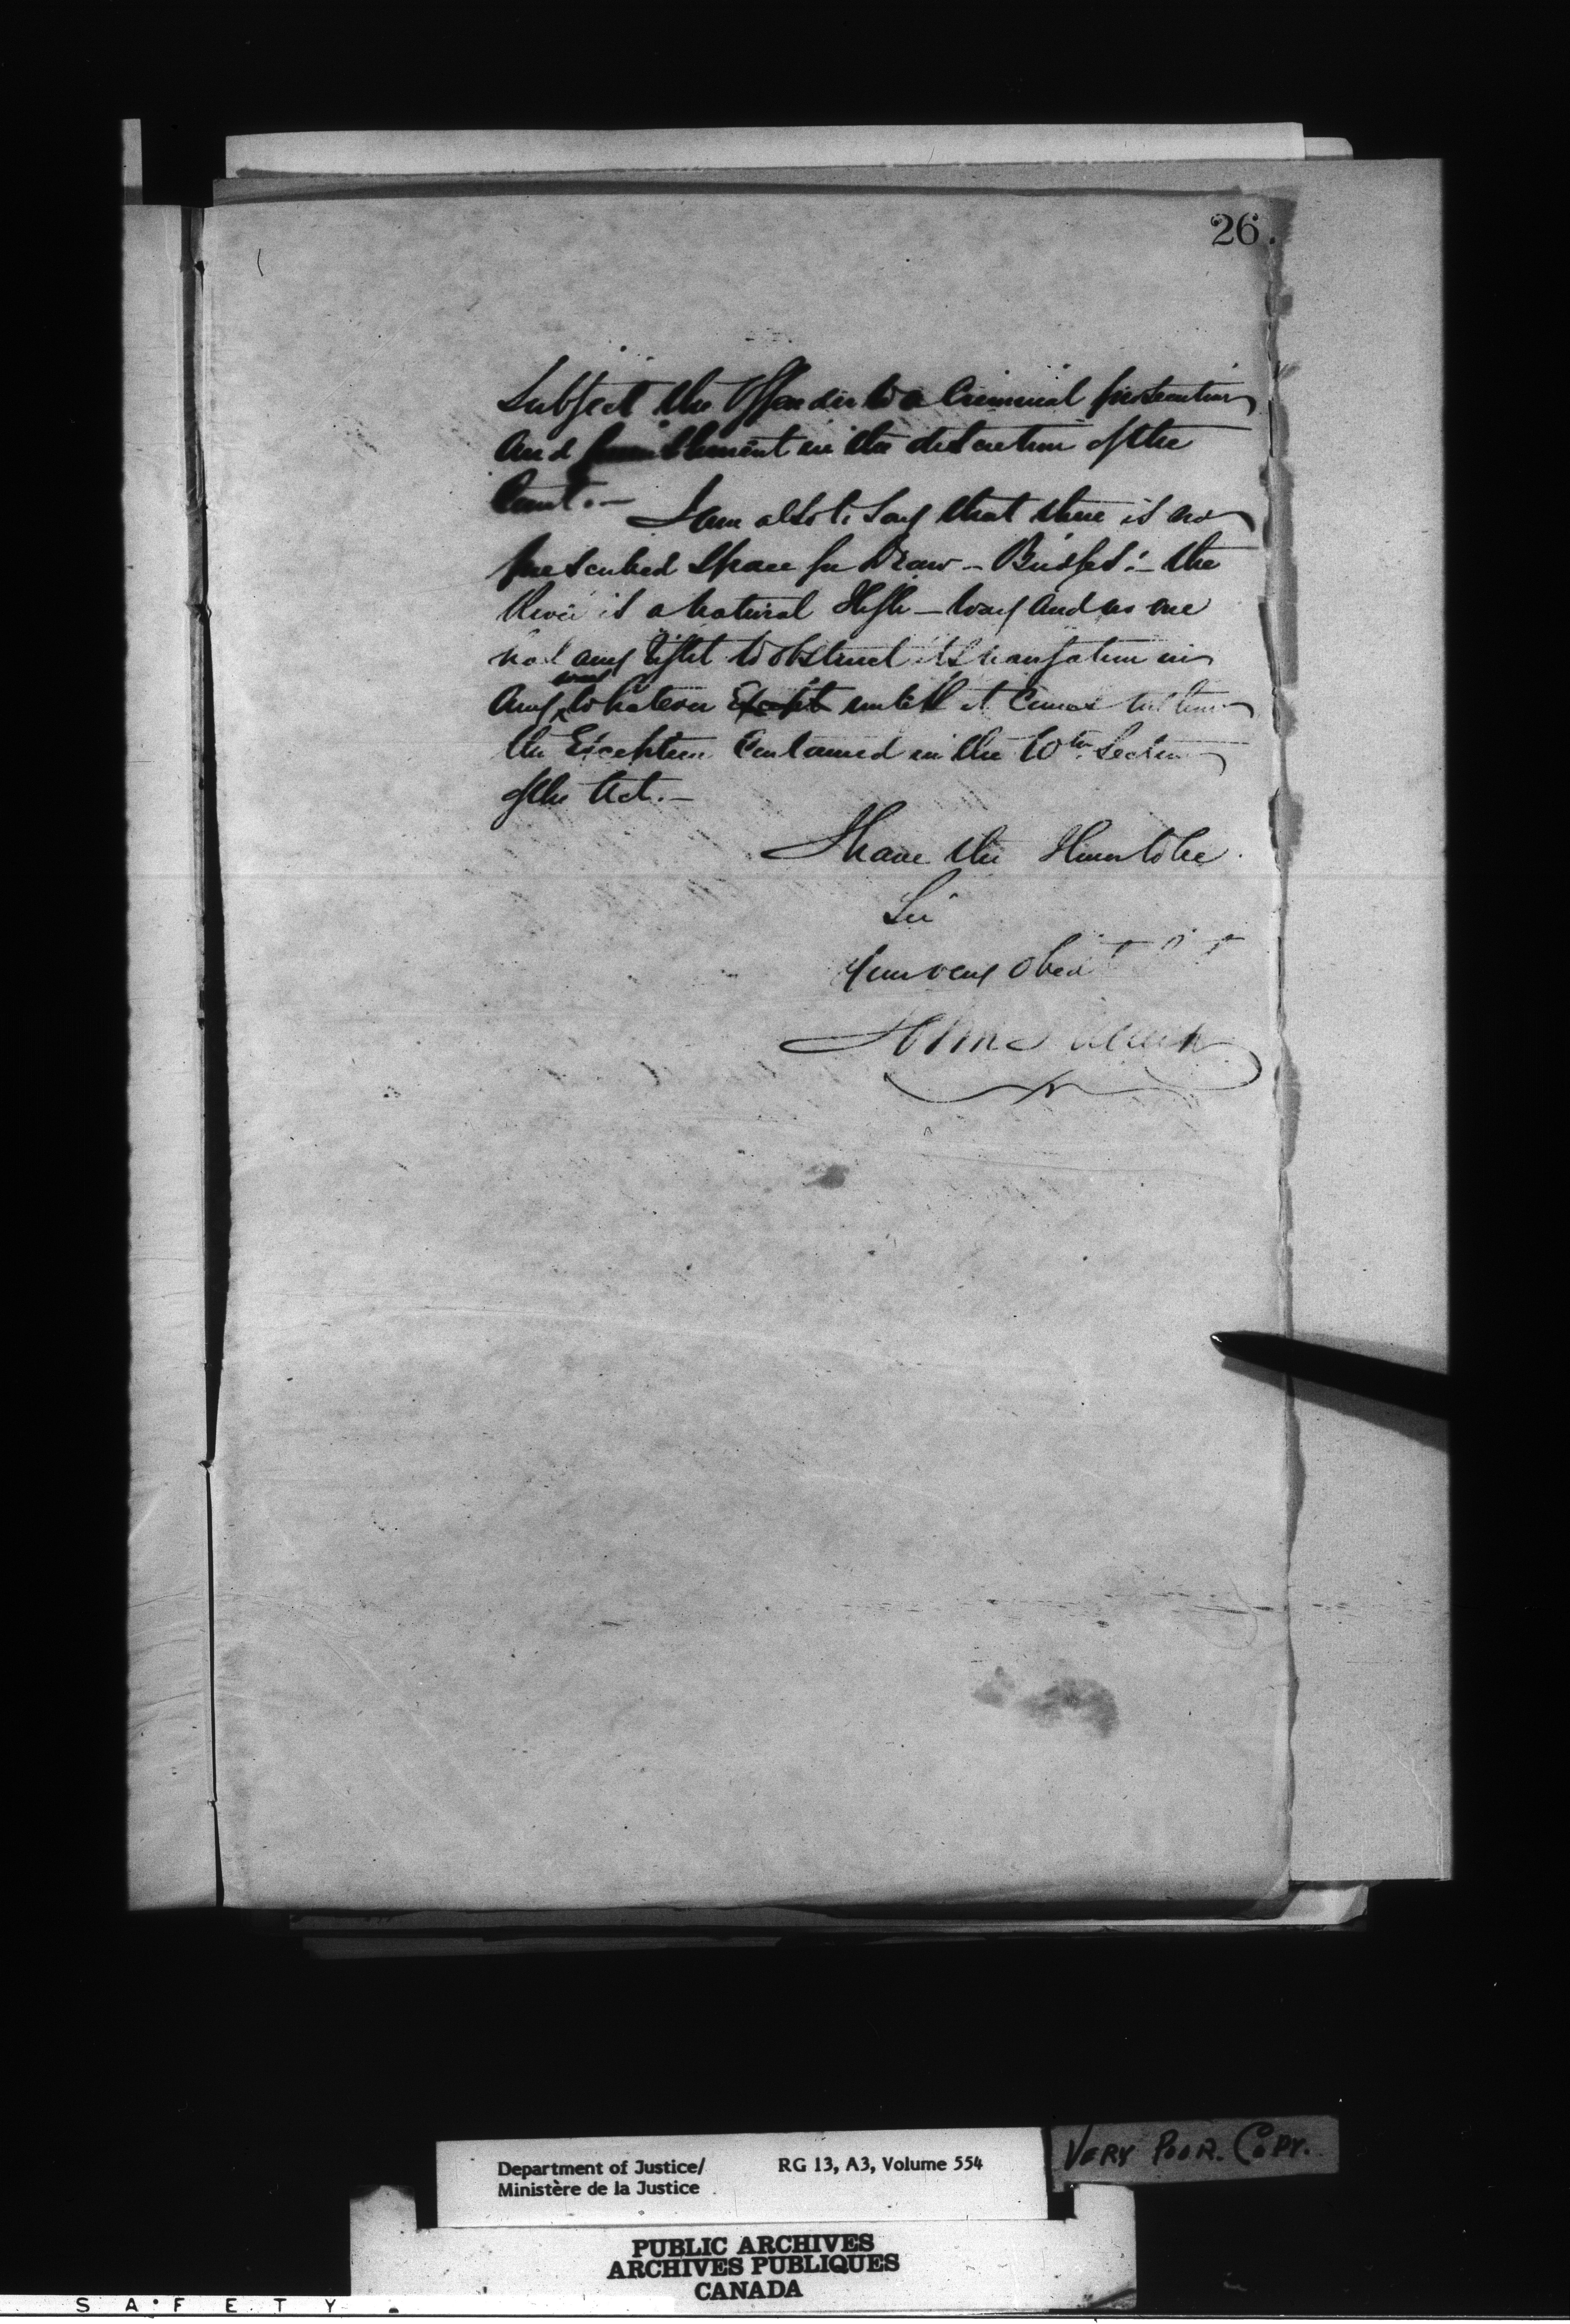 26.
Subject the Offender to a Criminal prosecution
and punishment in the discretion of the
Court. —
I am also to say that there is no
prescribed space for Draw - Bridges :- the
River is a natural High - way and no one
has any right to obstruct its navigation in
any way whatever Except until it comes within
the Exception Contained in the 10th Section
of the Act. —
I have the Honor to be
Sir
Your very Obedt
John
Department of Justice/ RG 13, A3, Volume 554
Ministère de la Justice
VERY POOR COPY.
PUBLIC ARCHIVES
ARCHIVES PUBLIQUES
CANADA
SAFETY